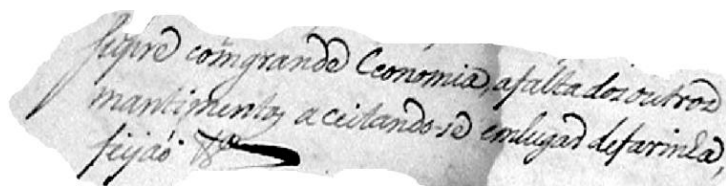 supre com grande Economia, afalta dos outros
mantimentos aceitando-se emlugar defarinha,
feijaõ &ª